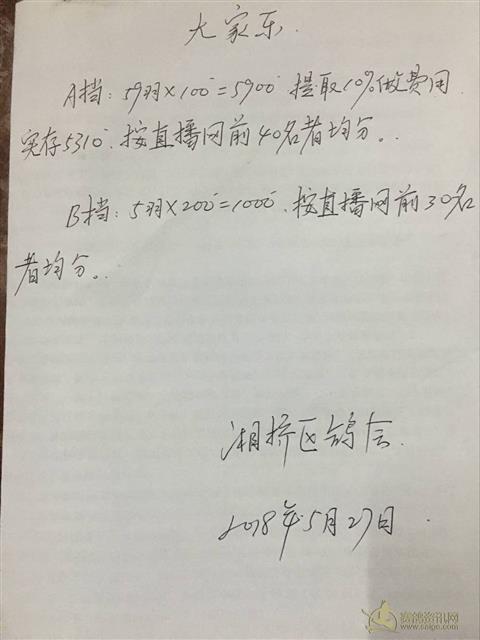 大家乐.
A挡：59羽×100=5900 提取10%做费用
实存5310.按直播网前40名者均分。
B挡：5羽×200=1000.按直播网前30名
者均分。
湘桥区鸽会.
2018年5月27日.
赛鸽资讯网
www.saige.com